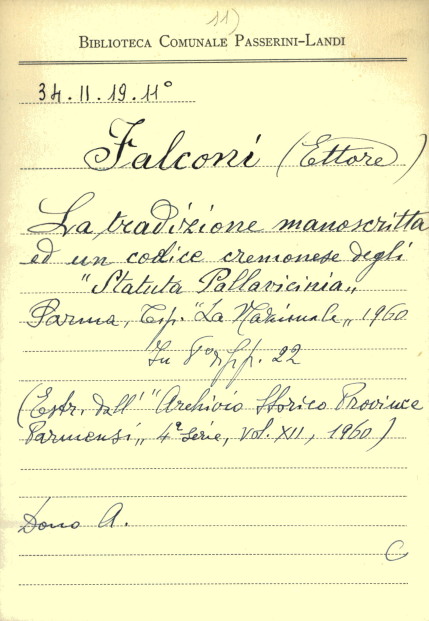 11)
BIBLIOTECA COMUNALE PASSERINI-LANDI
34.II.19.11°
Falconi (Ettore)
La tradizione manoscritta
ed un codice cremonese degli
"Statuta Pallavicinia„
Parma, Tip. "La Nazionale„ 1960
In 8° pp. 22
(Estr. dall' "Archivio Storico Province
Parmensi„ 4ª serie, vol. XII, 1960)
Dono A.
C